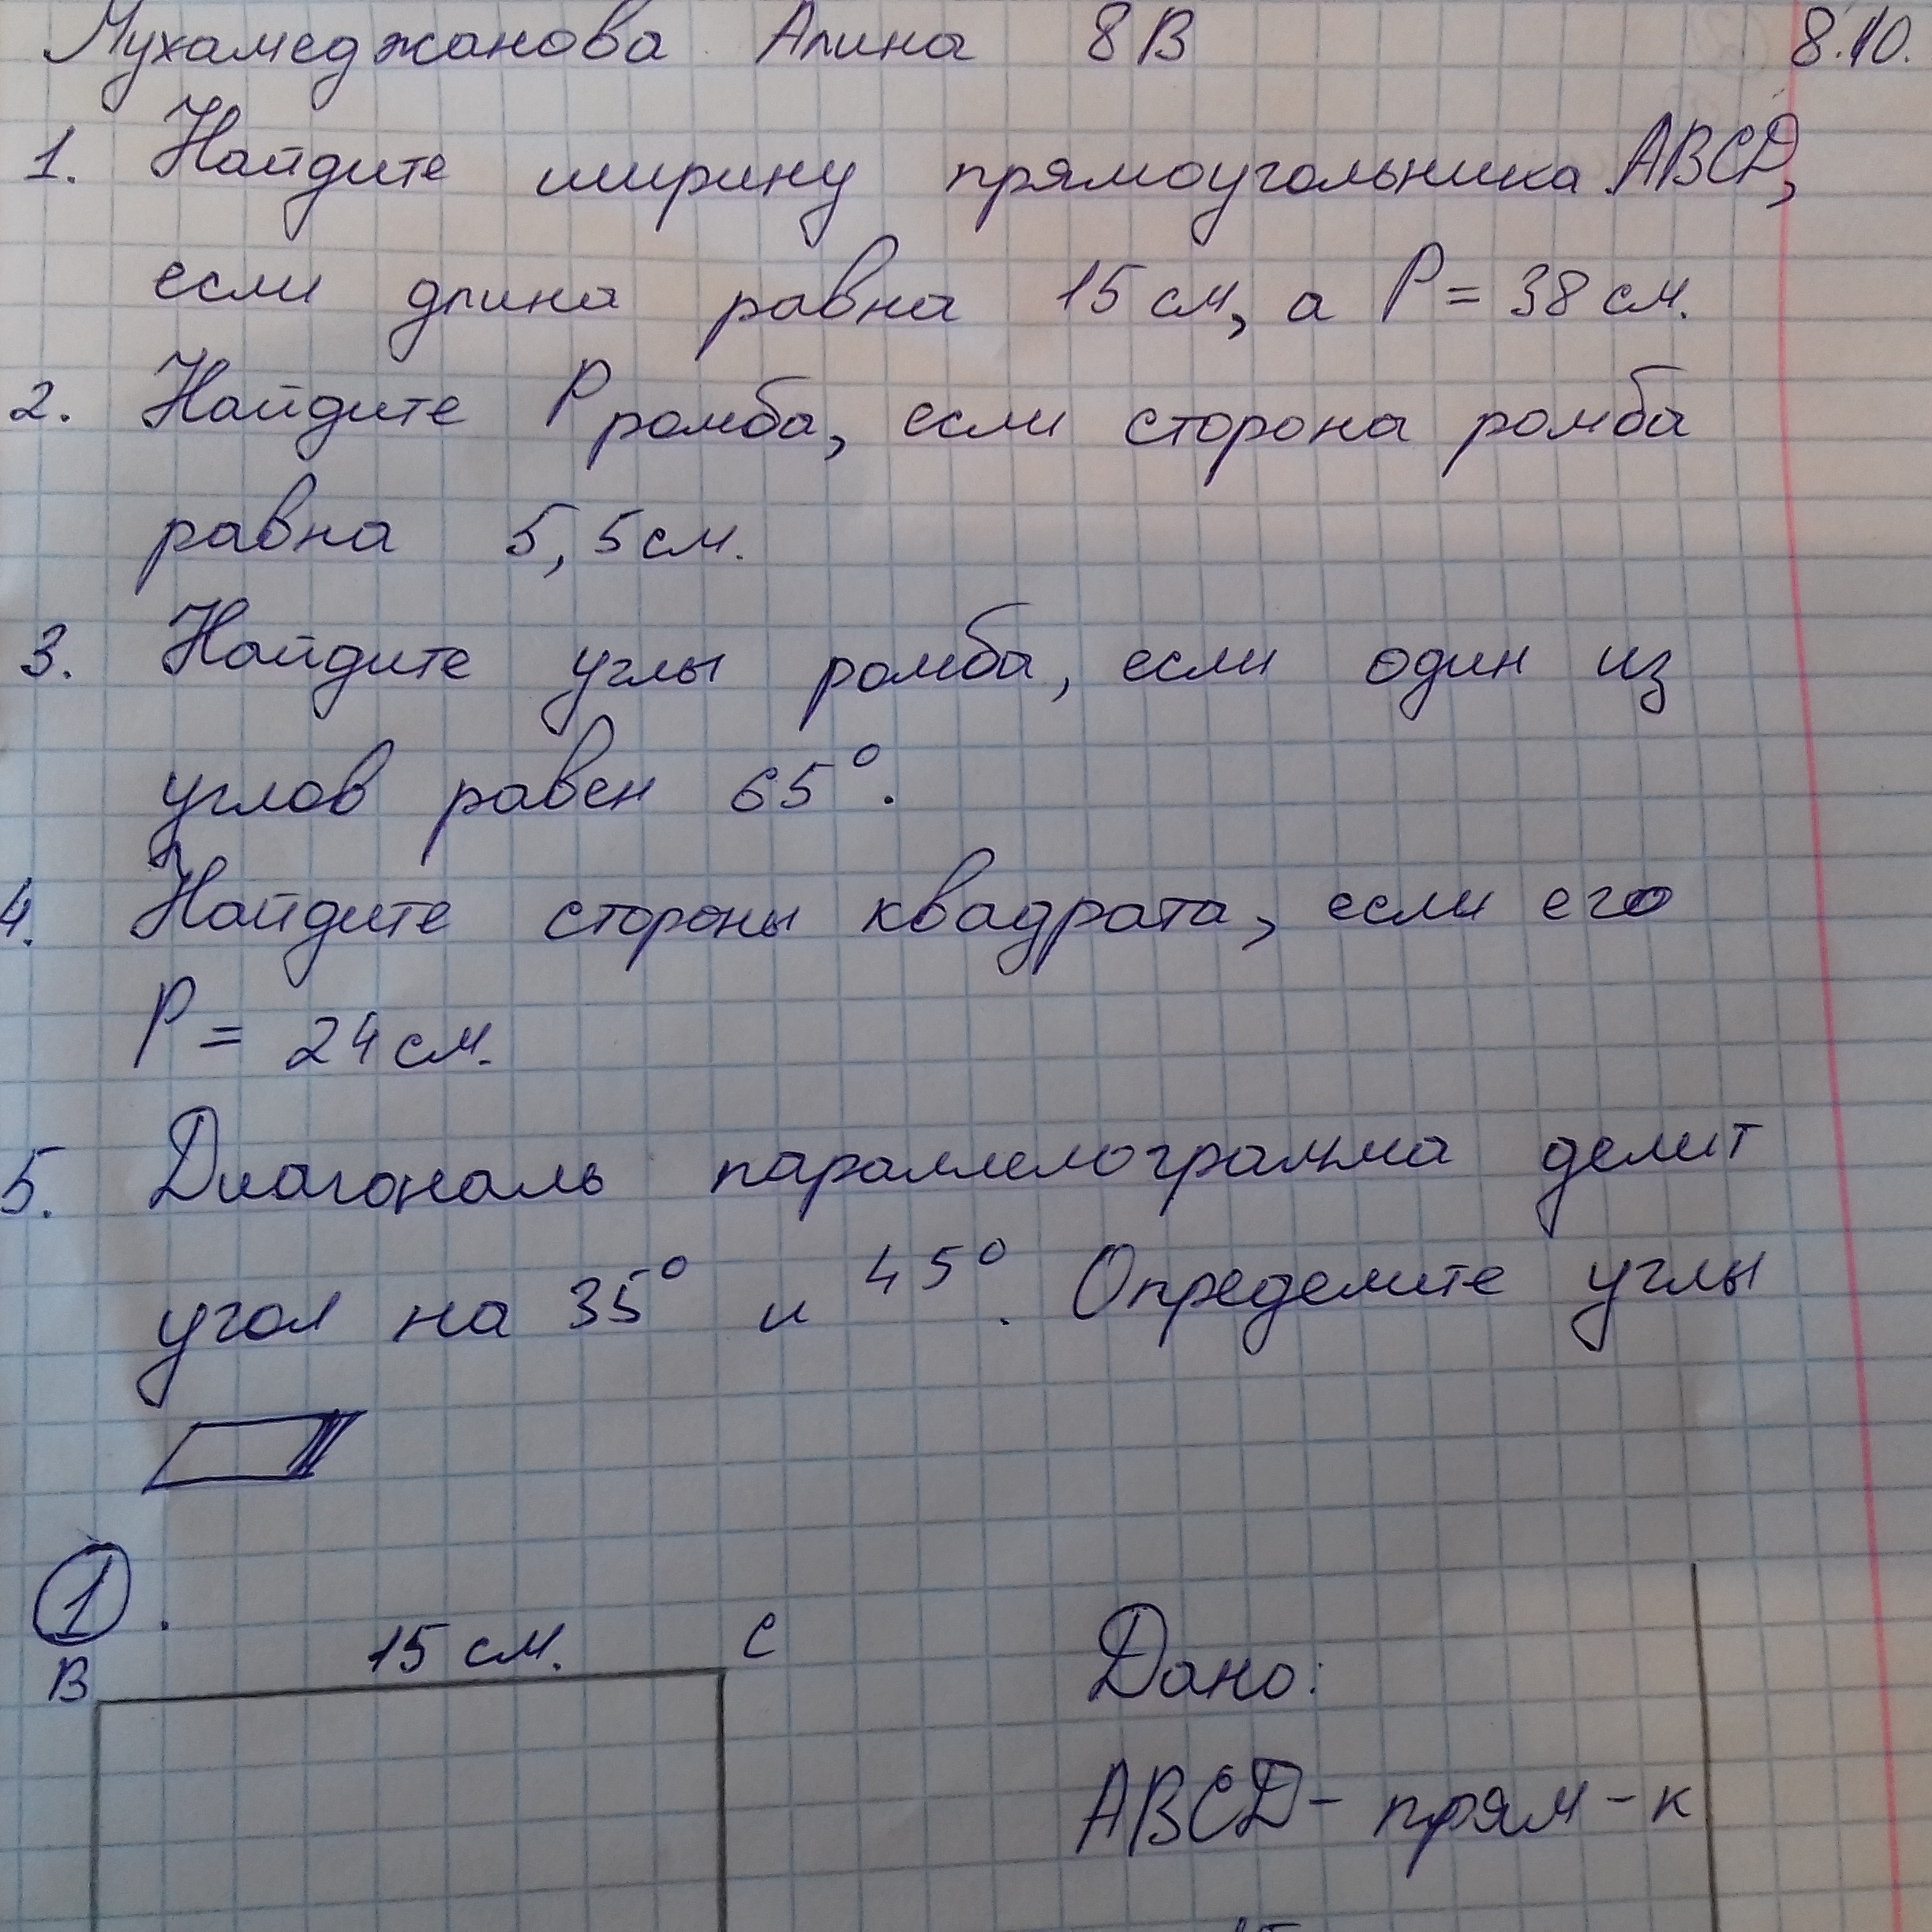 Мухамеджанова Алина 8В 8.10.
1. Найдите ширину прямоугольника ABCD,
если длина равна 15 см, а P = 38 см.
2. Найдите P ромба, если сторона ромба
равна 5,5 см.
3. Найдите углы ромба, если один из
углов равен 65°.
4. Найдите стороны квадрата, если его
P = 24 см.
5. Диагональ параллелограмма делит
угол на 35° и 45°. Определите углы
1.
15 см.
B C
Дано:
ABCD - прям-к